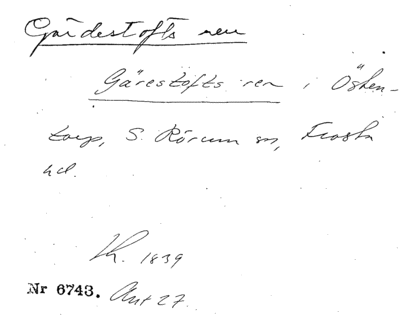 Gärdestofts ren
Gärestofts ren i Östen-
torp, S. Rörum sn, Frosta
hd.
Kh. 1839
Nr 6743. Ant 27.